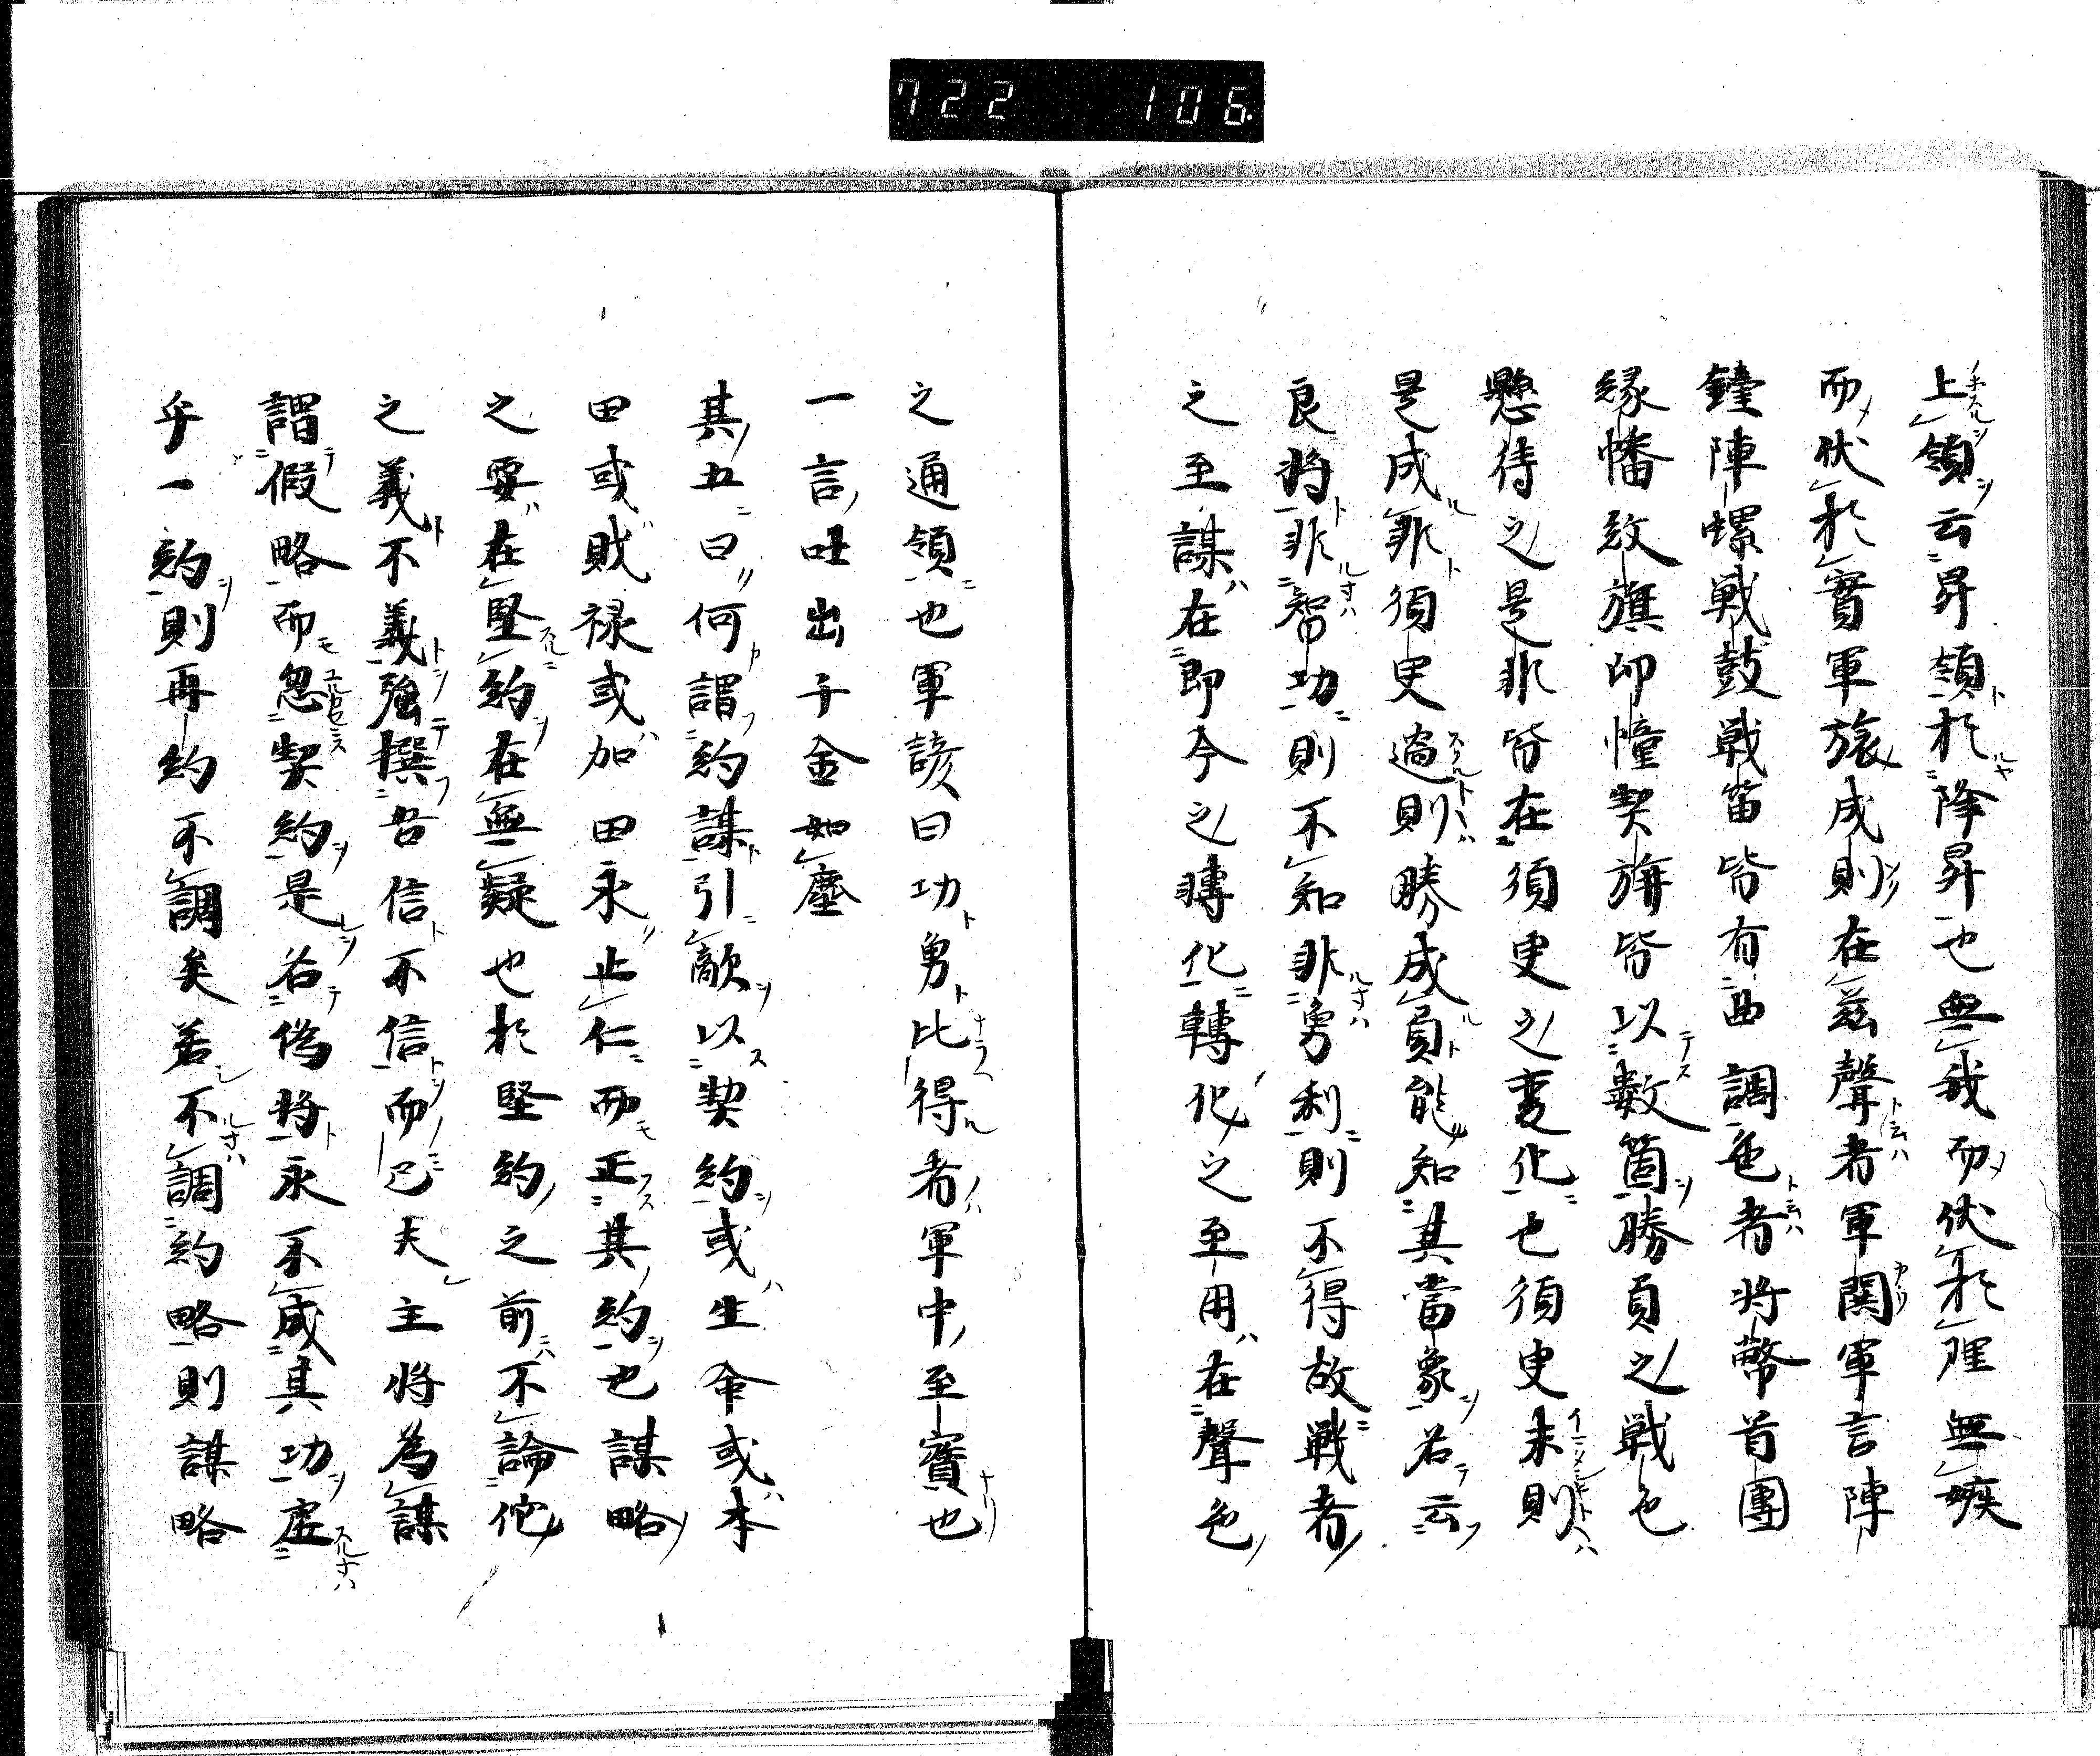 722 106.
上領云昇領於降昇也無我而伏於理無嫉
而伏於實軍旅成則在茲聲者軍関軍言陣
鐘陣螺戦鼓戦笛皆有曲調色者将幣首團
縁幡紋旗印幢契旃皆以數箇勝負之戦色
懸待之是非皆在須叟之変化也須叟未則
是成非須叟過則勝成負能知其當象若云
良将非智功則不知非勇利則不得故戦者
之至謀在即今之轉化轉化之至用在聲色
之通領也軍諺曰功勇比得者軍中至寳也
一言吐出千金如塵
其五曰何謂約謀引敵以契約或生命或本
田或賎禄或加田永止仁而正其約也謀略
之要在堅約在無疑也於堅約之前不論佗
之義不義強撰吾信不信而已夫主将為謀
謂假略而忽契約是名偽将永不成其功虚
乎一約則再約不調矣若不調約略則謀略